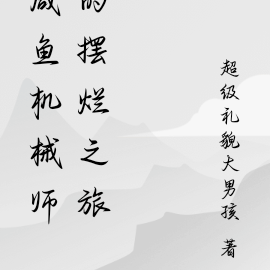 咸鱼机械师
的摆烂之旅
超级礼貌大男孩 著